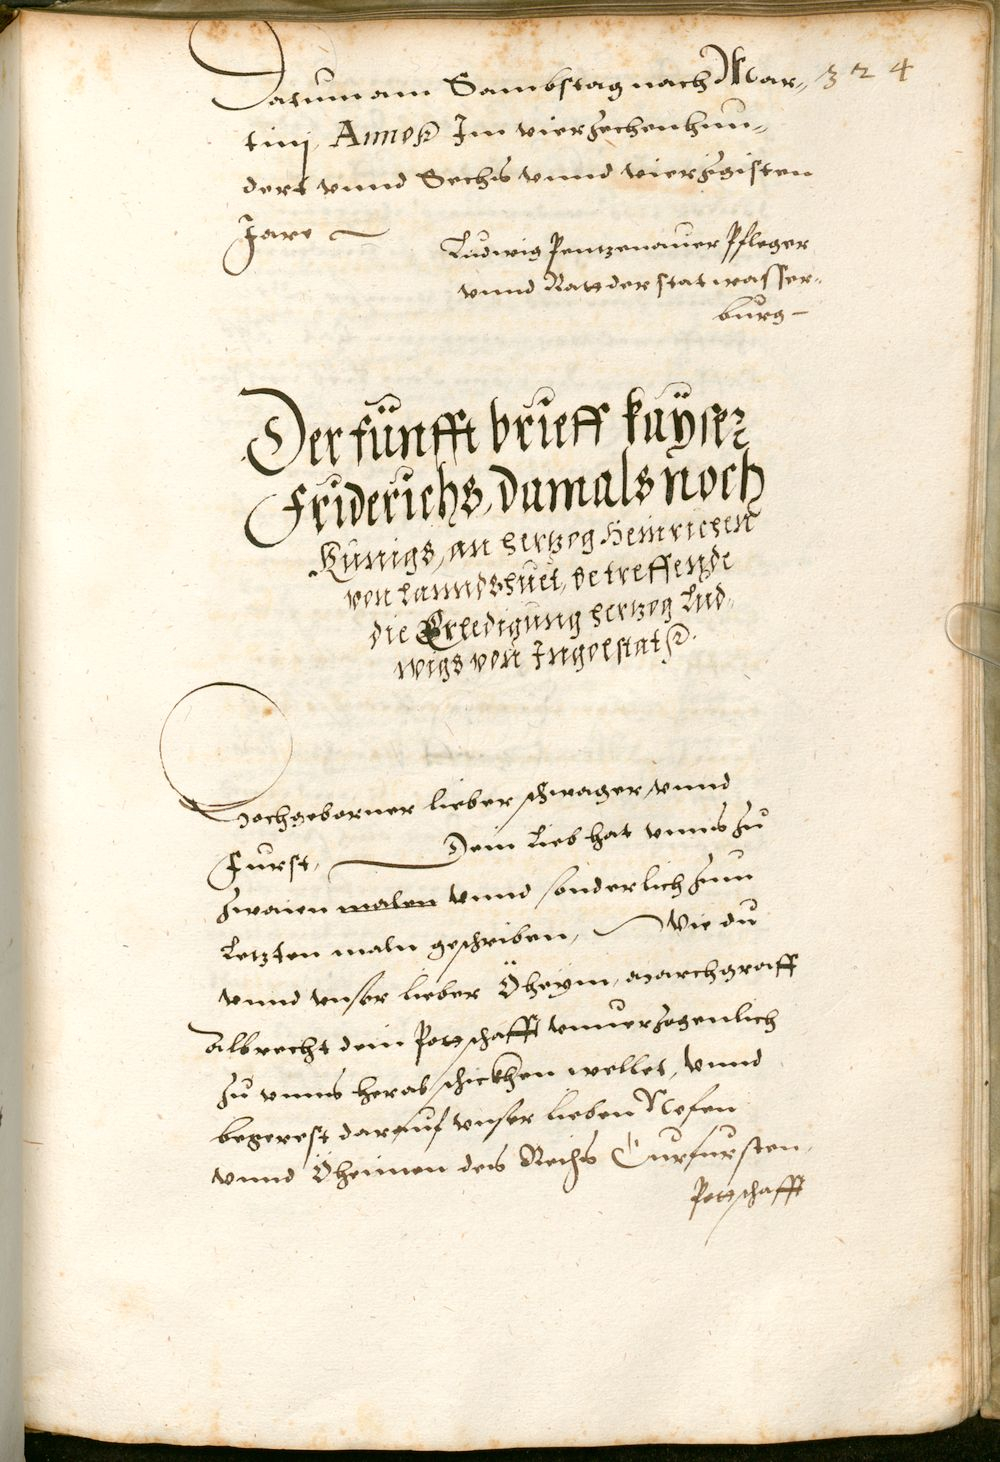 324
Datum am Sambstag nach Mar-
tinj Anno etc. Im vierzechenhun-
dert vnnd Sechs vnnd vierzigisten
Jare
Ludwig Pentzenauer Pfleger
vnnd Rate der stat wasser-
burg
Der fünfft brieff kaÿser
Friderichs, damals noch
Künigs, an Hertzog Heinrichen
von Lanndshuet, betreffende
die Erledigung Hertzog Lud-
wigs von Ingolstat etc.
Hochgeborner lieber schwager, vnnd
Furst, Dein Lieb hat vnns zu
zwaien malen vnnd sonderlich zum
Letzten maln geschriben, Wie du
vnnd vnser lieber Öheym, marchgraff
Albrecht dein Potschafft vnuerzogenlich
zu vnns herab schickhen wellet, vnnd
begerest darauf vnser lieben Nefen
vnnd Öheimen des Reichs Curfursten,
Potschafft